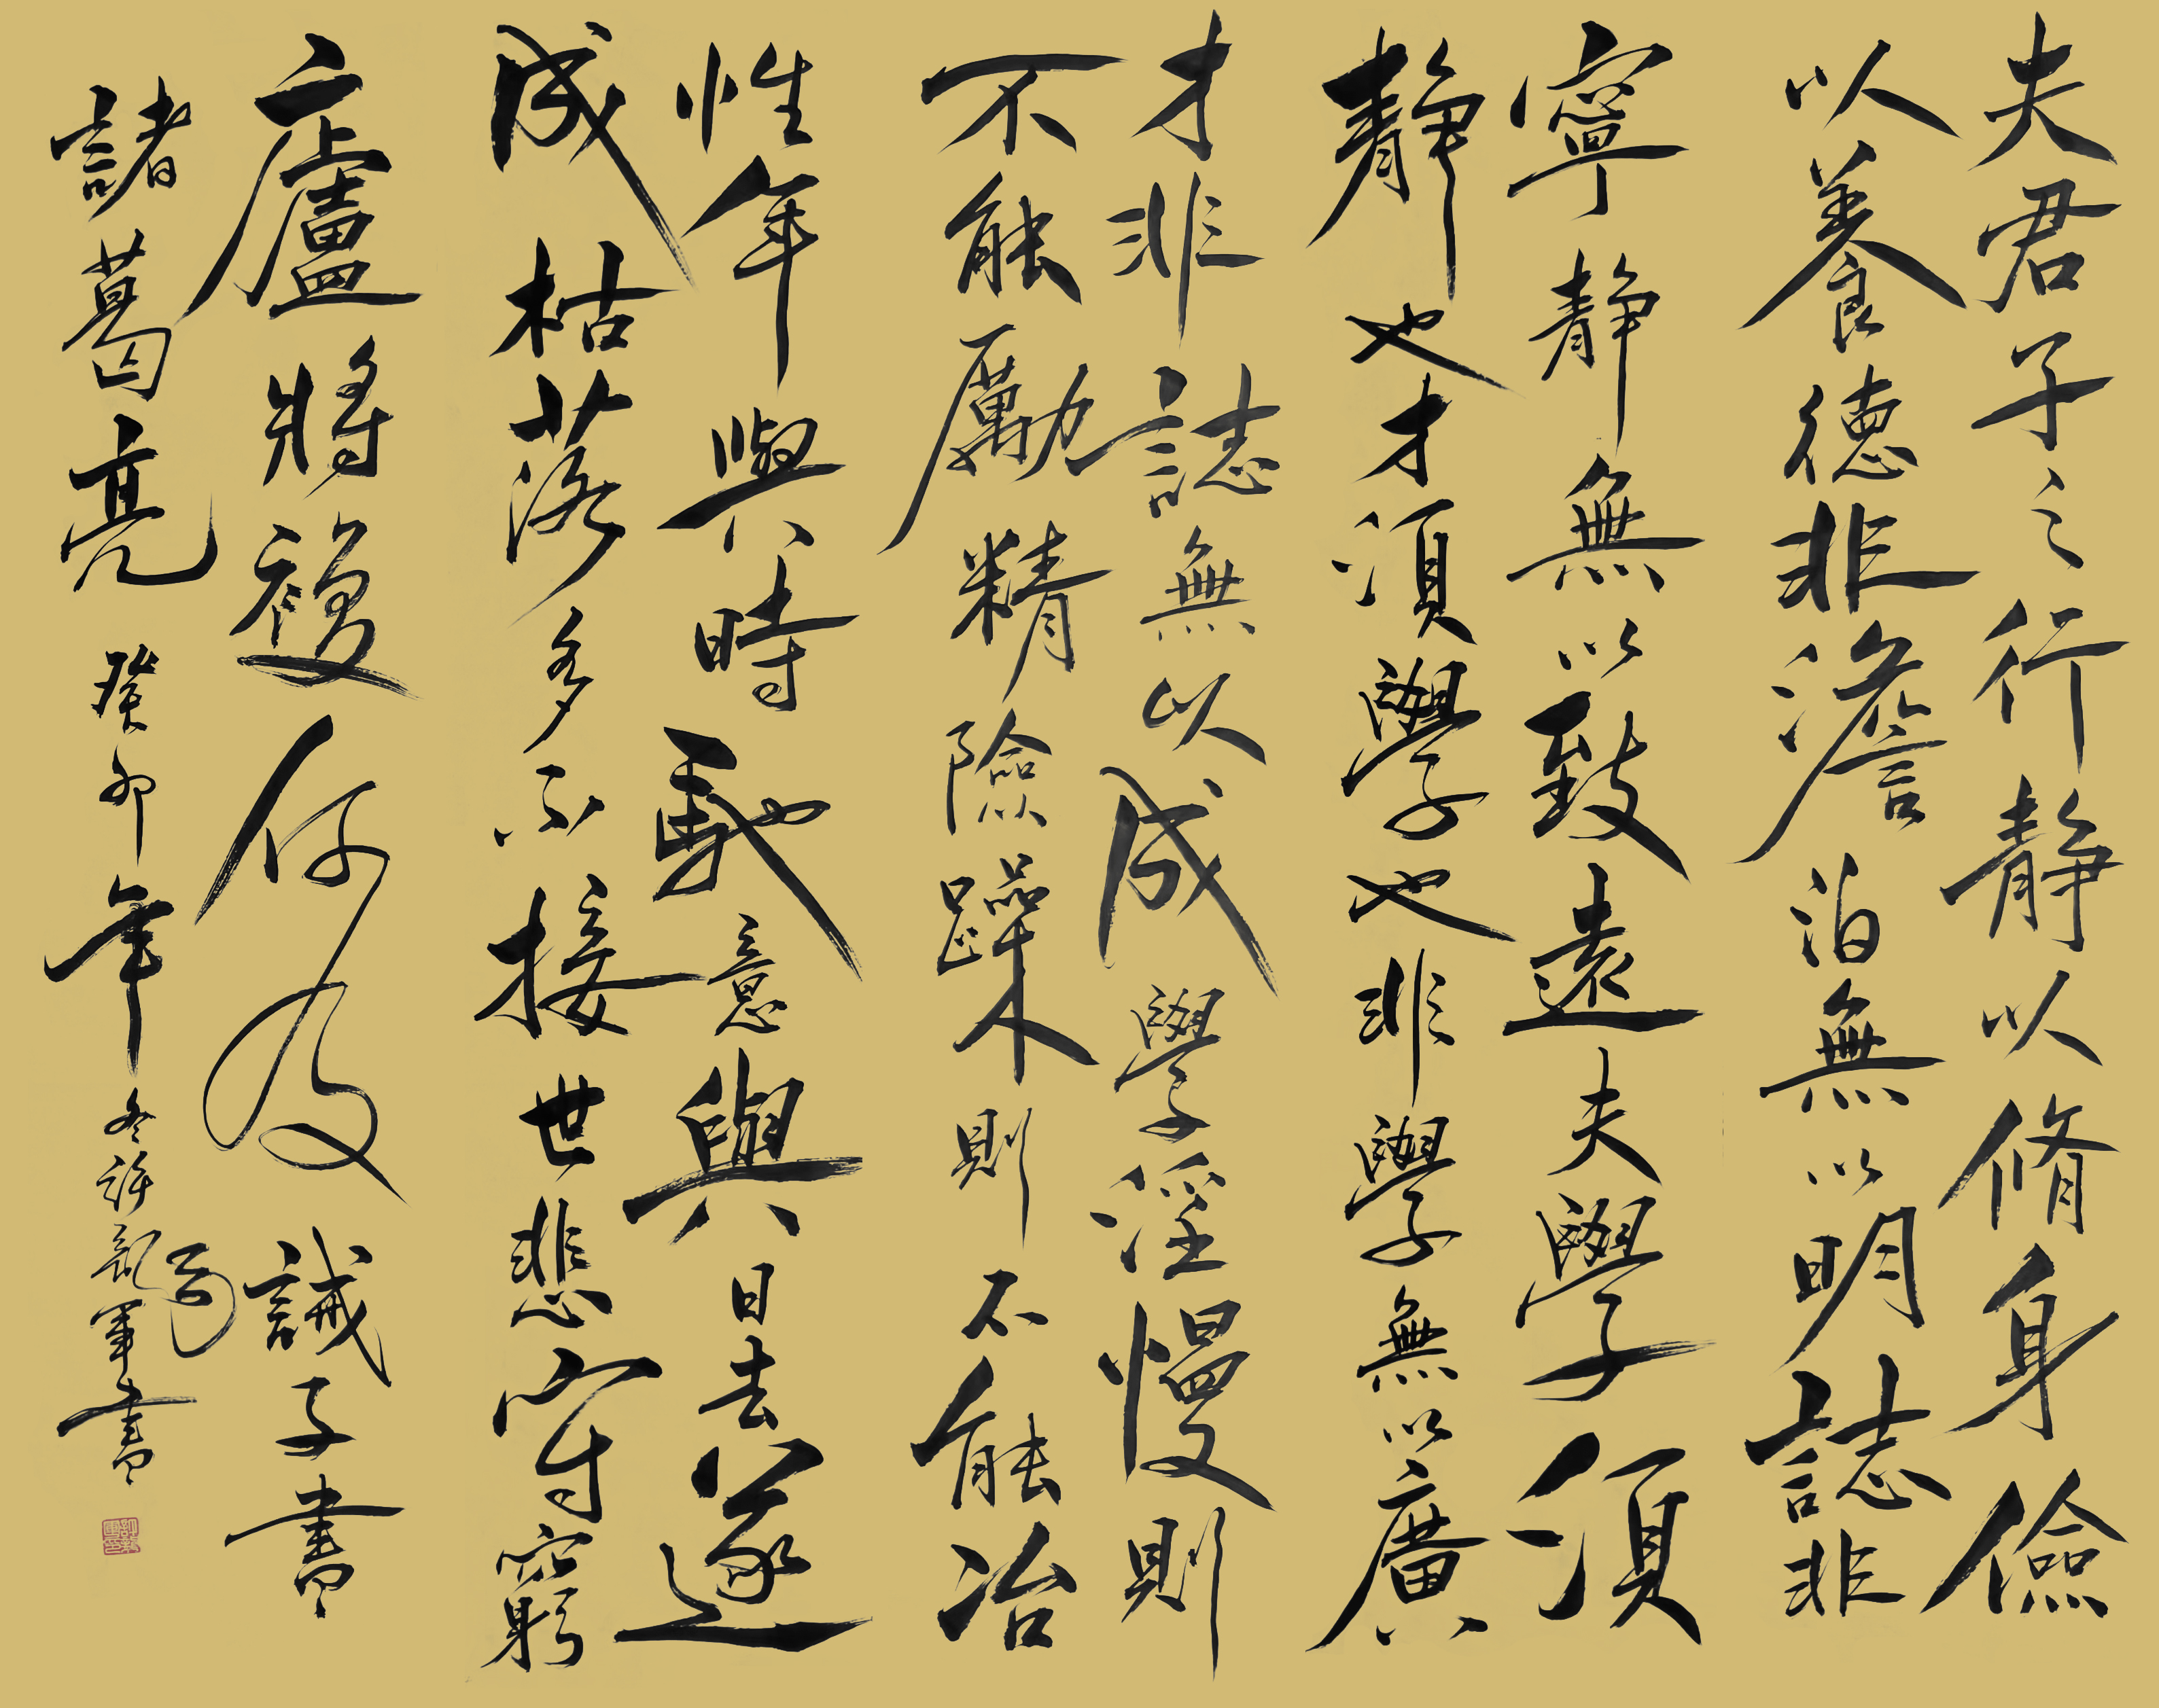 夫君子之行靜以脩身儉
以養德非澹泊無以明誌非
寧靜無以致遠夫學須
靜也才須學也非學無以廣
才非誌無以成學淫慢則
不能勵精險躁則不能冶
性年與時馳意與日去遂
成枯落多不接世悲守窮
廬將復何及誡子書
諸葛亮 癸卯年冬許龍軍書